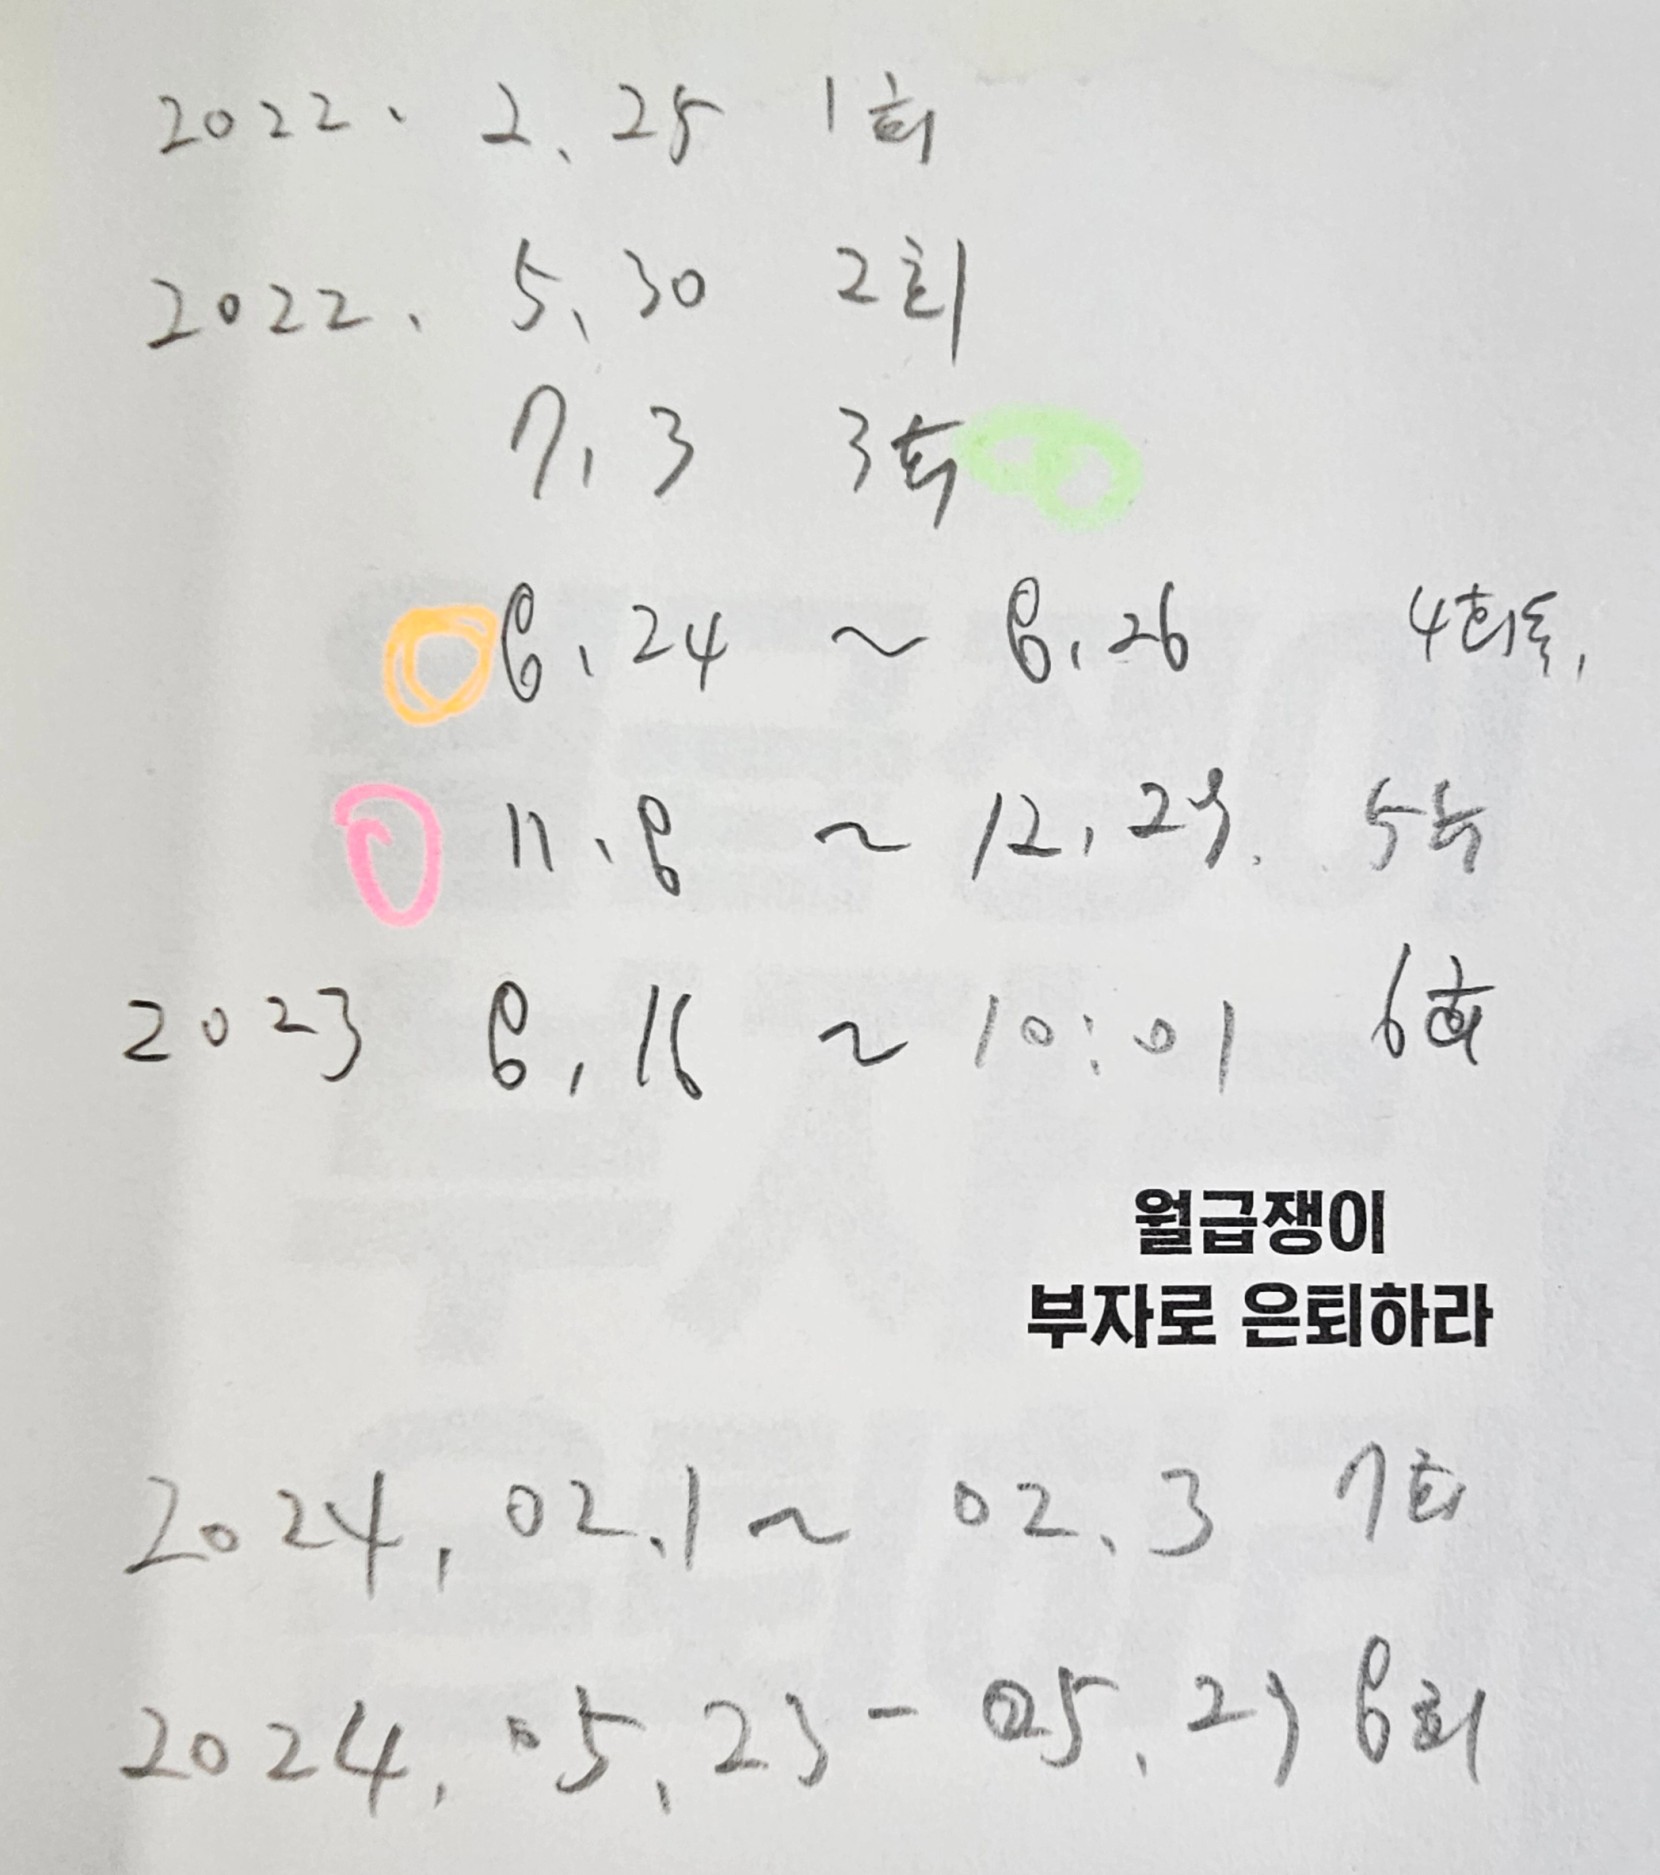 2022. 2. 25 1회
2022. 5. 30 2회
7. 3 3회
8. 24 ~ 8. 26 4회독.
11. 8 ~ 12. 29. 5회
2023 8. 16 ~ 10:01 6회
월급쟁이
부자로 은퇴하라
2024. 02. 1 ~ 02. 3 7회
2024. 05. 23 - 05. 29 8회